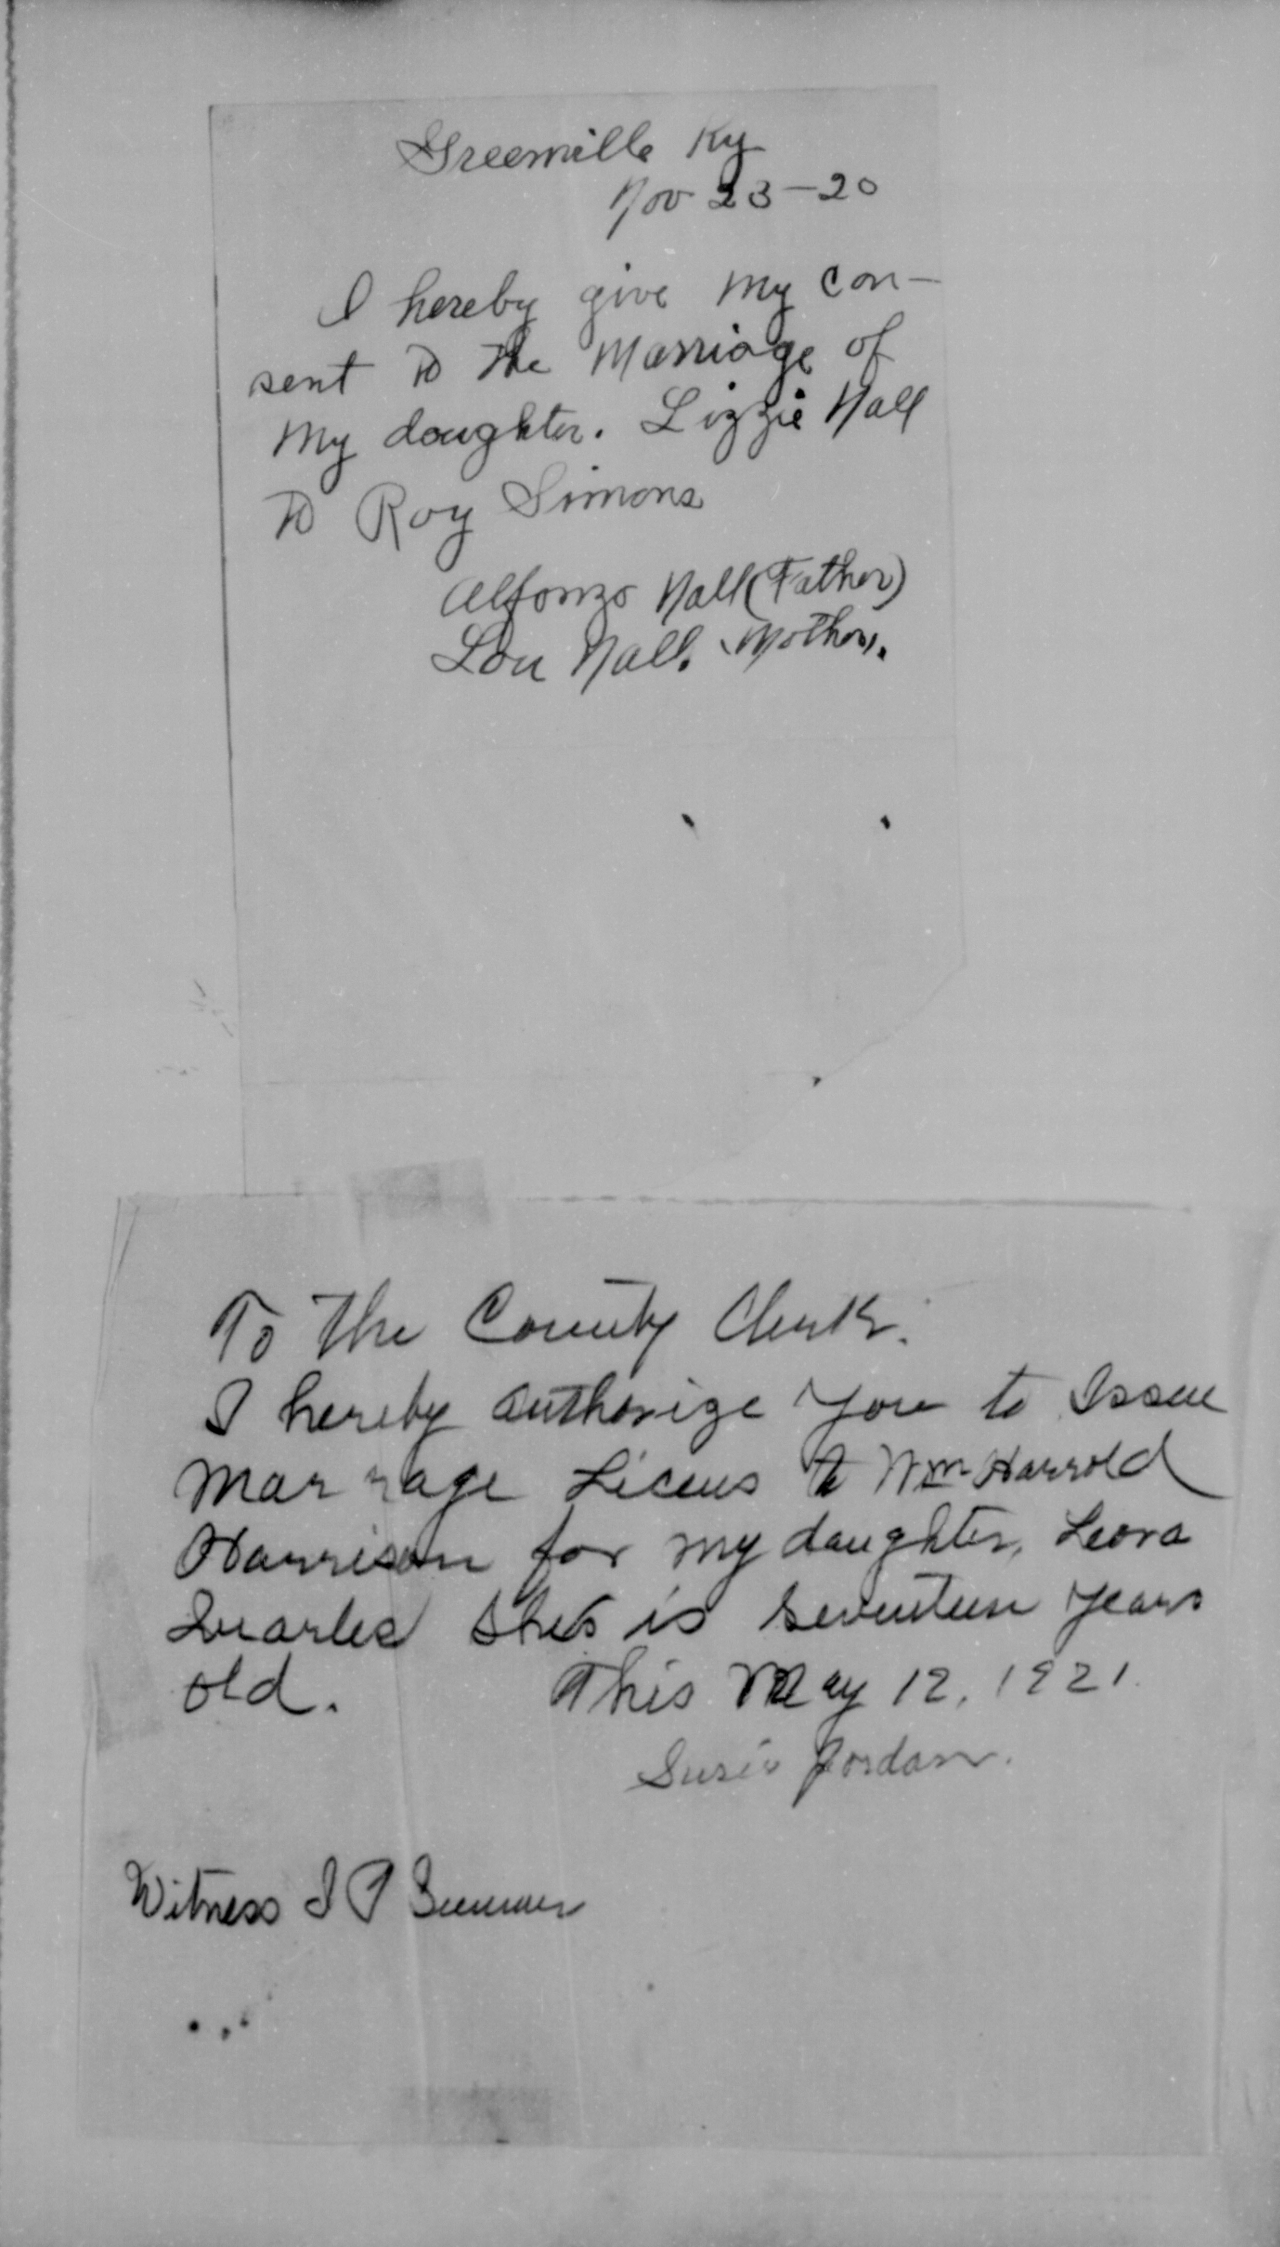 Greenville Ky
Nov 23-20
I hereby give my con-
sent to the marriage of
my daughter. Lizzie Nall
to Roy Simons
Alfonzo Nall (Father)
Lou Nall. Mother.
To the County Clerk.
I hereby authorize you to Issue
Marrage Licens to Wm Harrold
Harrison for my daughter, Leora
Quarles She is seventeen years
old. This May 12, 1921.
Susie Jordan.
Witness J P